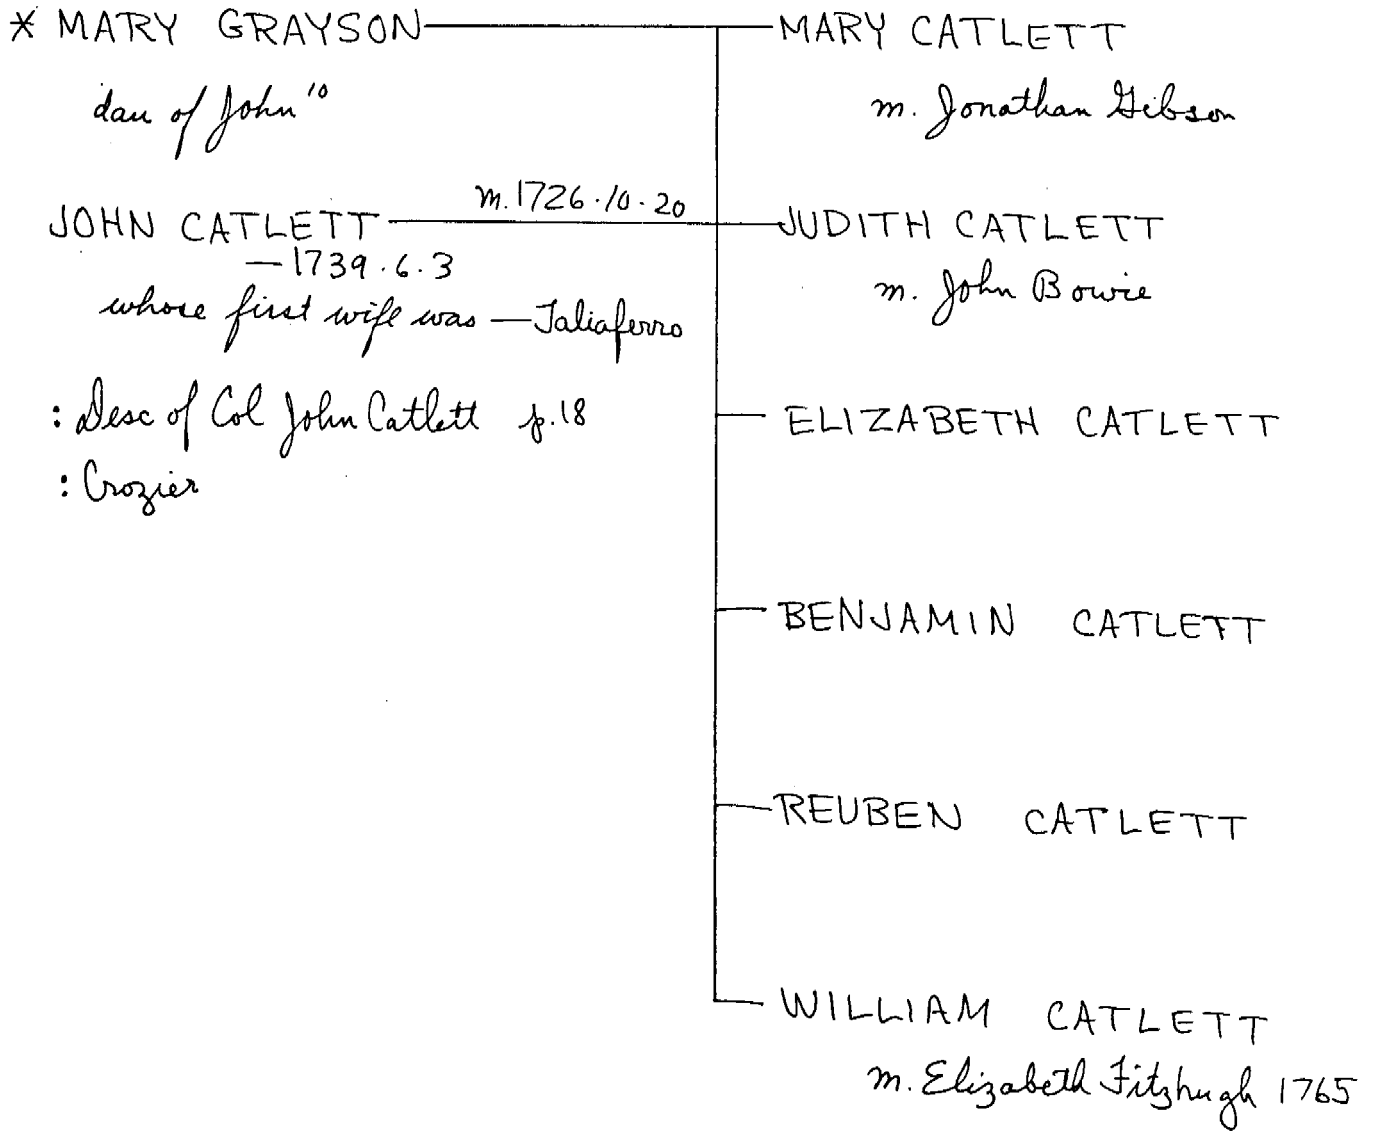 * MARY GRAYSON
dau of John 10
JOHN CATLETT
m. 1726.10.20
— 1739.6.3
whose first wife was — Taliaferro
: Desc of Col John Catlett p. 18
: Crozier
MARY CATLETT
m. Jonathan Gibson
JUDITH CATLETT
m. John Bowie
ELIZABETH CATLETT
BENJAMIN CATLETT
REUBEN CATLETT
WILLIAM CATLETT
m. Elizabeth Fitzhugh 1765